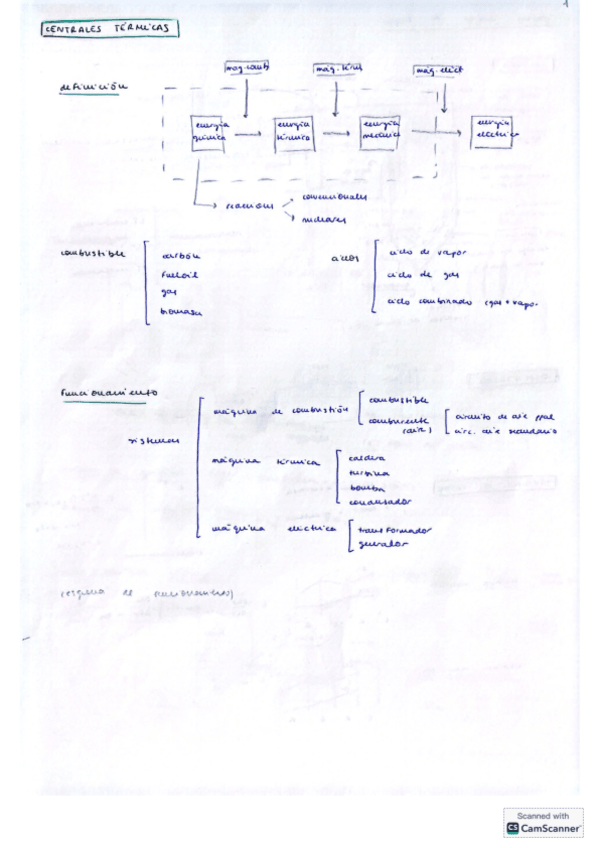 1
CENTRALES TÉRMICAS
máq. comb máq. térm máq. eléct
definición
energía química energía térmica energía mecánica energía eléctrica
convencionales
reacciones
nucleares
combustible carbón ciclos ciclo de vapor
fueloil ciclo de gas
gas
biomasa ciclo combinado (gas + vapor
Funcionamiento
sistemas
máquina de combustión combustible
comburente (aire) circuito de aire ppal
circ. aire secundario
máquina térmica caldera
turbina
bomba
condensador
máquina eléctrica transformador
generador
(esquema de funcionamiento)
Scanned with
CS CamScanner